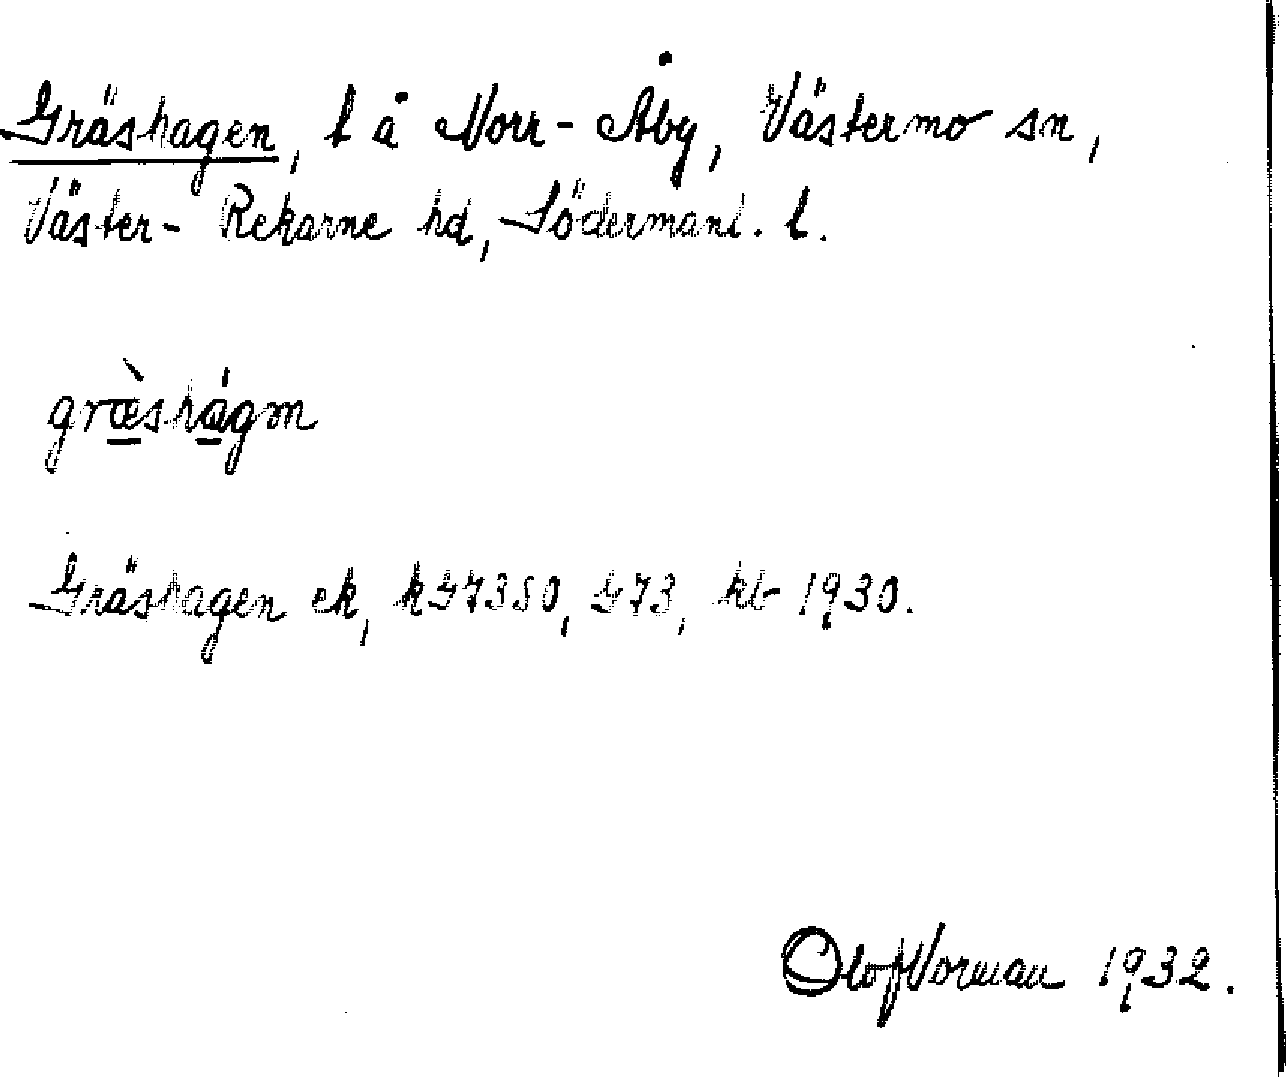 Gräshagen, t å Norr-Åby, Västermo sn,
Väster-Rekarne hd, Södermanl. l.
græ̀shágm
Gräshagen ek, k G7350, G73, kb 1930.
Olof Norman 1932.